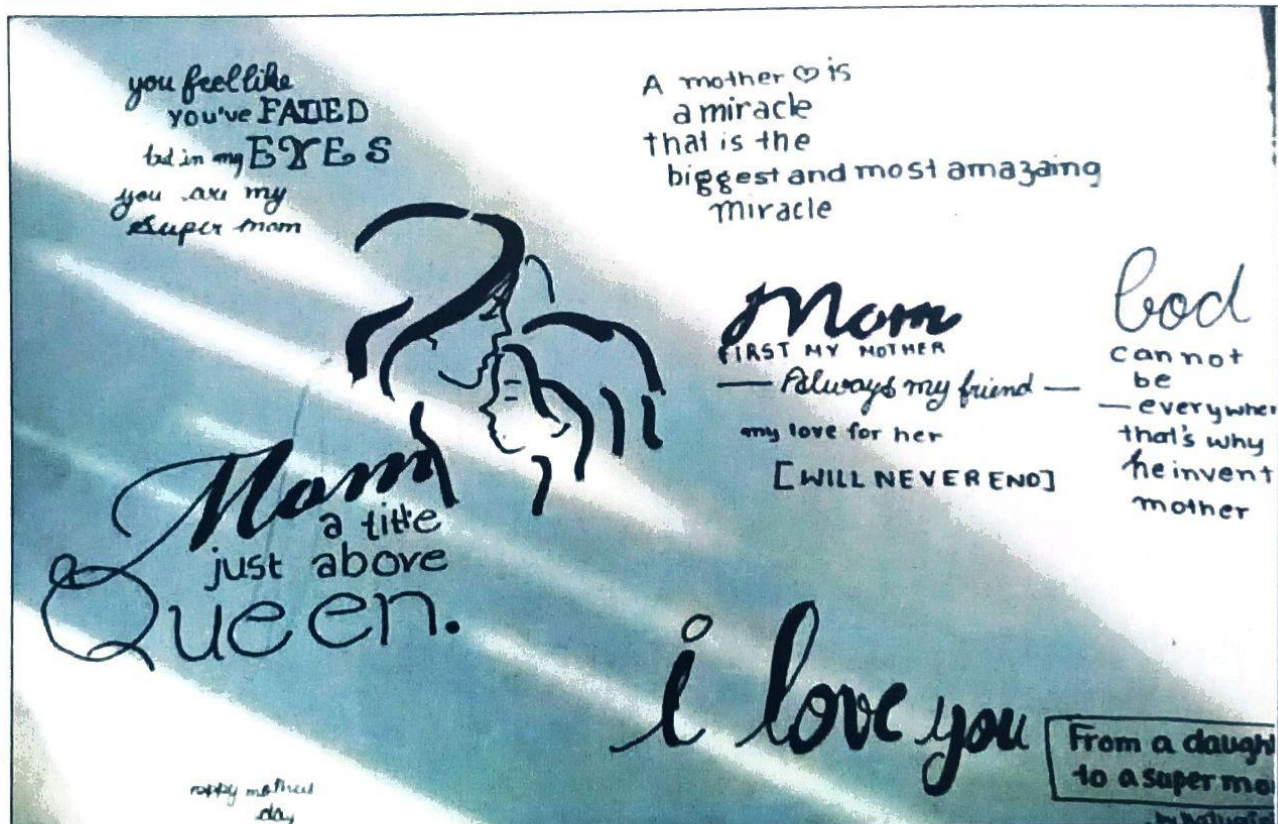 you feel like
you've FAILED
but in my EYES
you are my
super mom
A mother ♡ is
a miracle
that is the
biggest and most amazaing
miracle
Mom
FIRST MY MOTHER
— Always my friend —
my love for her
[WILL NEVER END]
God
can not
be
— everywher
that's why
he invent
mother
Mom
a title
just above
Queen.
i love you
From a daugh
to a super mo
happy mothers
day